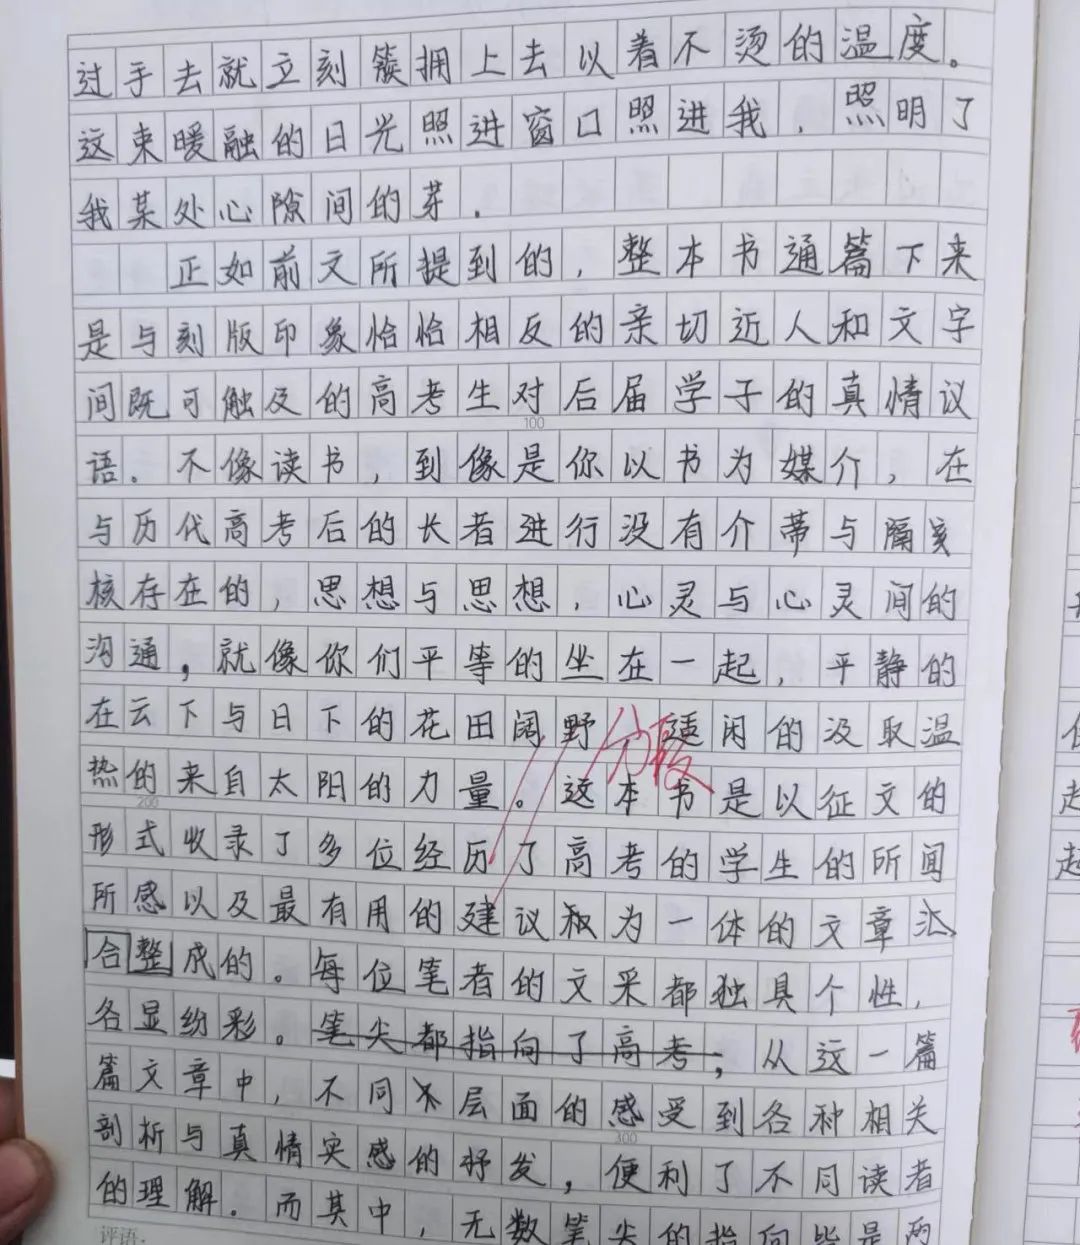 过手去就立刻簇拥上去以着不烫的温度。
这束暖融的日光照进窗口照进我，照明了
我某处心隙间的芽．
正如前文所提到的，整本书通篇下来
是与刻版印象恰恰相反的亲切近人和文字
间既可触及的高考生对后届学子的真情议
100
语．不像读书，到像是你以书为媒介，在
与历代高考后的长者进行没有介蒂与隔亥
核存在的，思想与思想，心灵与心灵间的
沟通，就像你们平等的坐在一起，平静的
在云下与日下的花田阔野 适闲的汲取温
分段
热的来自太阳的力量。这本书是以征文的
200
形式收录了多位经历了高考的学生的所闻
所感以及最有用的建议和为一体的文章汇
合整成的。每位笔者的文采都独具个性，
各显纷彩。笔尖都指向了高考，从这一篇
篇文章中，不同层面的感受到各种相关
300
剖析与真情实感的抒发，便利了不同读者
的理解．而其中，无数笔尖的指向皆是两
评语：